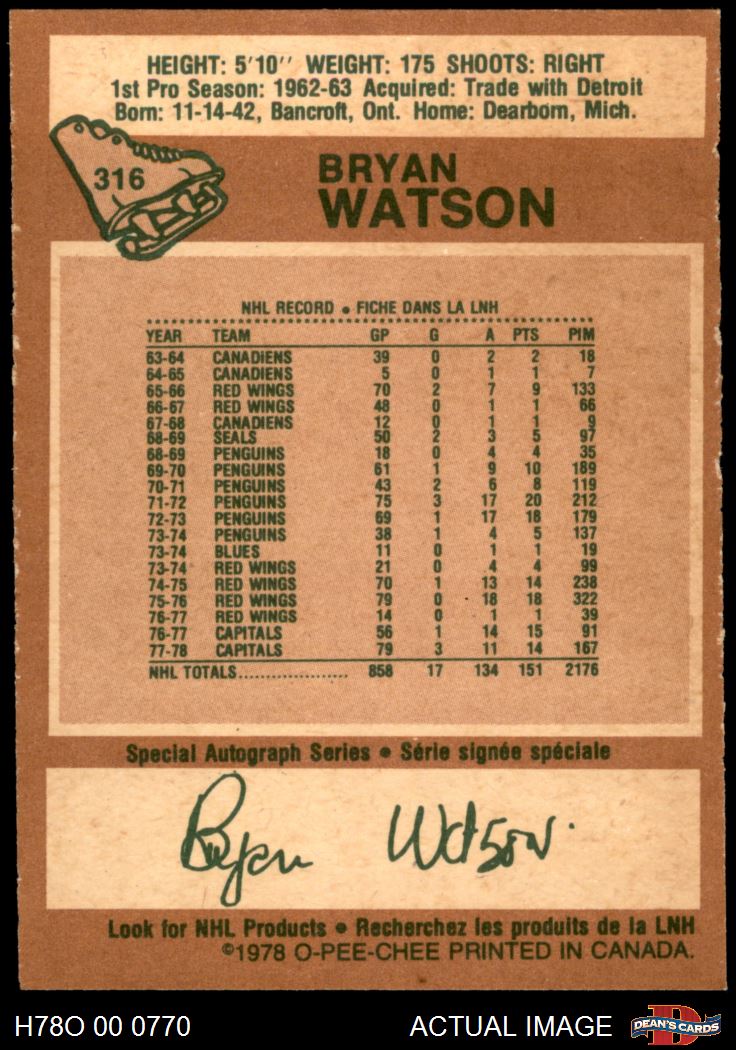 HEIGHT: 5'10'' WEIGHT: 175 SHOOTS: RIGHT
1st Pro Season: 1962-63 Acquired: Trade with Detroit
Born: 11-14-42, Bancroft, Ont. Home: Dearborn, Mich.
316
BRYAN
WATSON
NHL RECORD • FICHE DANS LA LNH
YEAR TEAM GP G A PTS PIM
63-64 CANADIENS 39 0 2 2 18
64-65 CANADIENS 5 0 1 1 7
65-66 RED WINGS 70 2 7 9 133
66-67 RED WINGS 48 0 1 1 66
67-68 CANADIENS 12 0 1 1 9
68-69 SEALS 50 2 3 5 97
68-69 PENGUINS 18 0 4 4 35
69-70 PENGUINS 61 1 9 10 189
70-71 PENGUINS 43 2 6 8 119
71-72 PENGUINS 75 3 17 20 212
72-73 PENGUINS 69 1 17 18 179
73-74 PENGUINS 38 1 4 5 137
73-74 BLUES 11 0 1 1 19
73-74 RED WINGS 21 0 4 4 99
74-75 RED WINGS 70 1 13 14 238
75-76 RED WINGS 79 0 18 18 322
76-77 RED WINGS 14 0 1 1 39
76-77 CAPITALS 56 1 14 15 91
77-78 CAPITALS 79 3 11 14 167
NHL TOTALS.................... 858 17 134 151 2176
Special Autograph Series • Série signée spéciale
Bryan Watson
Look for NHL Products • Recherchez les produits de la LNH
©1978 O-PEE-CHEE PRINTED IN CANADA.
H78O 00 0770 ACTUAL IMAGE DEAN'S CARDS